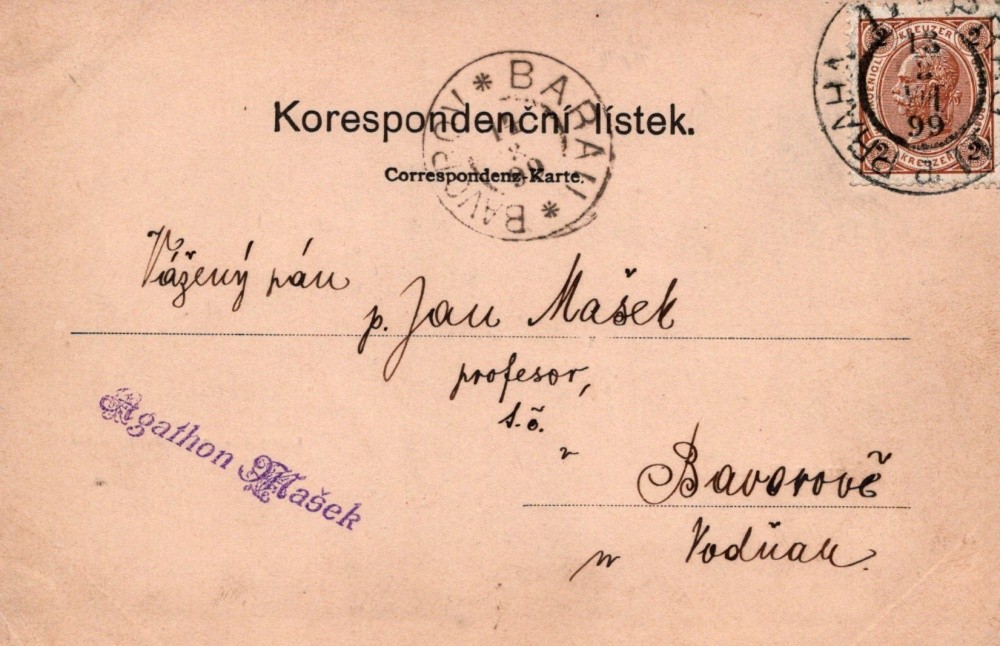 Korespondenční lístek.
Correspondenz-Karte.
* BARAU *
BAVOROV
99
2 KREUZER 2
2 KREUZER 2
PRAHA
13
VI
99
Vážený pán
p. Jan Mašek
profesor,
t.č.
v Bavorově
u Vodňan.
Agathon Mašek